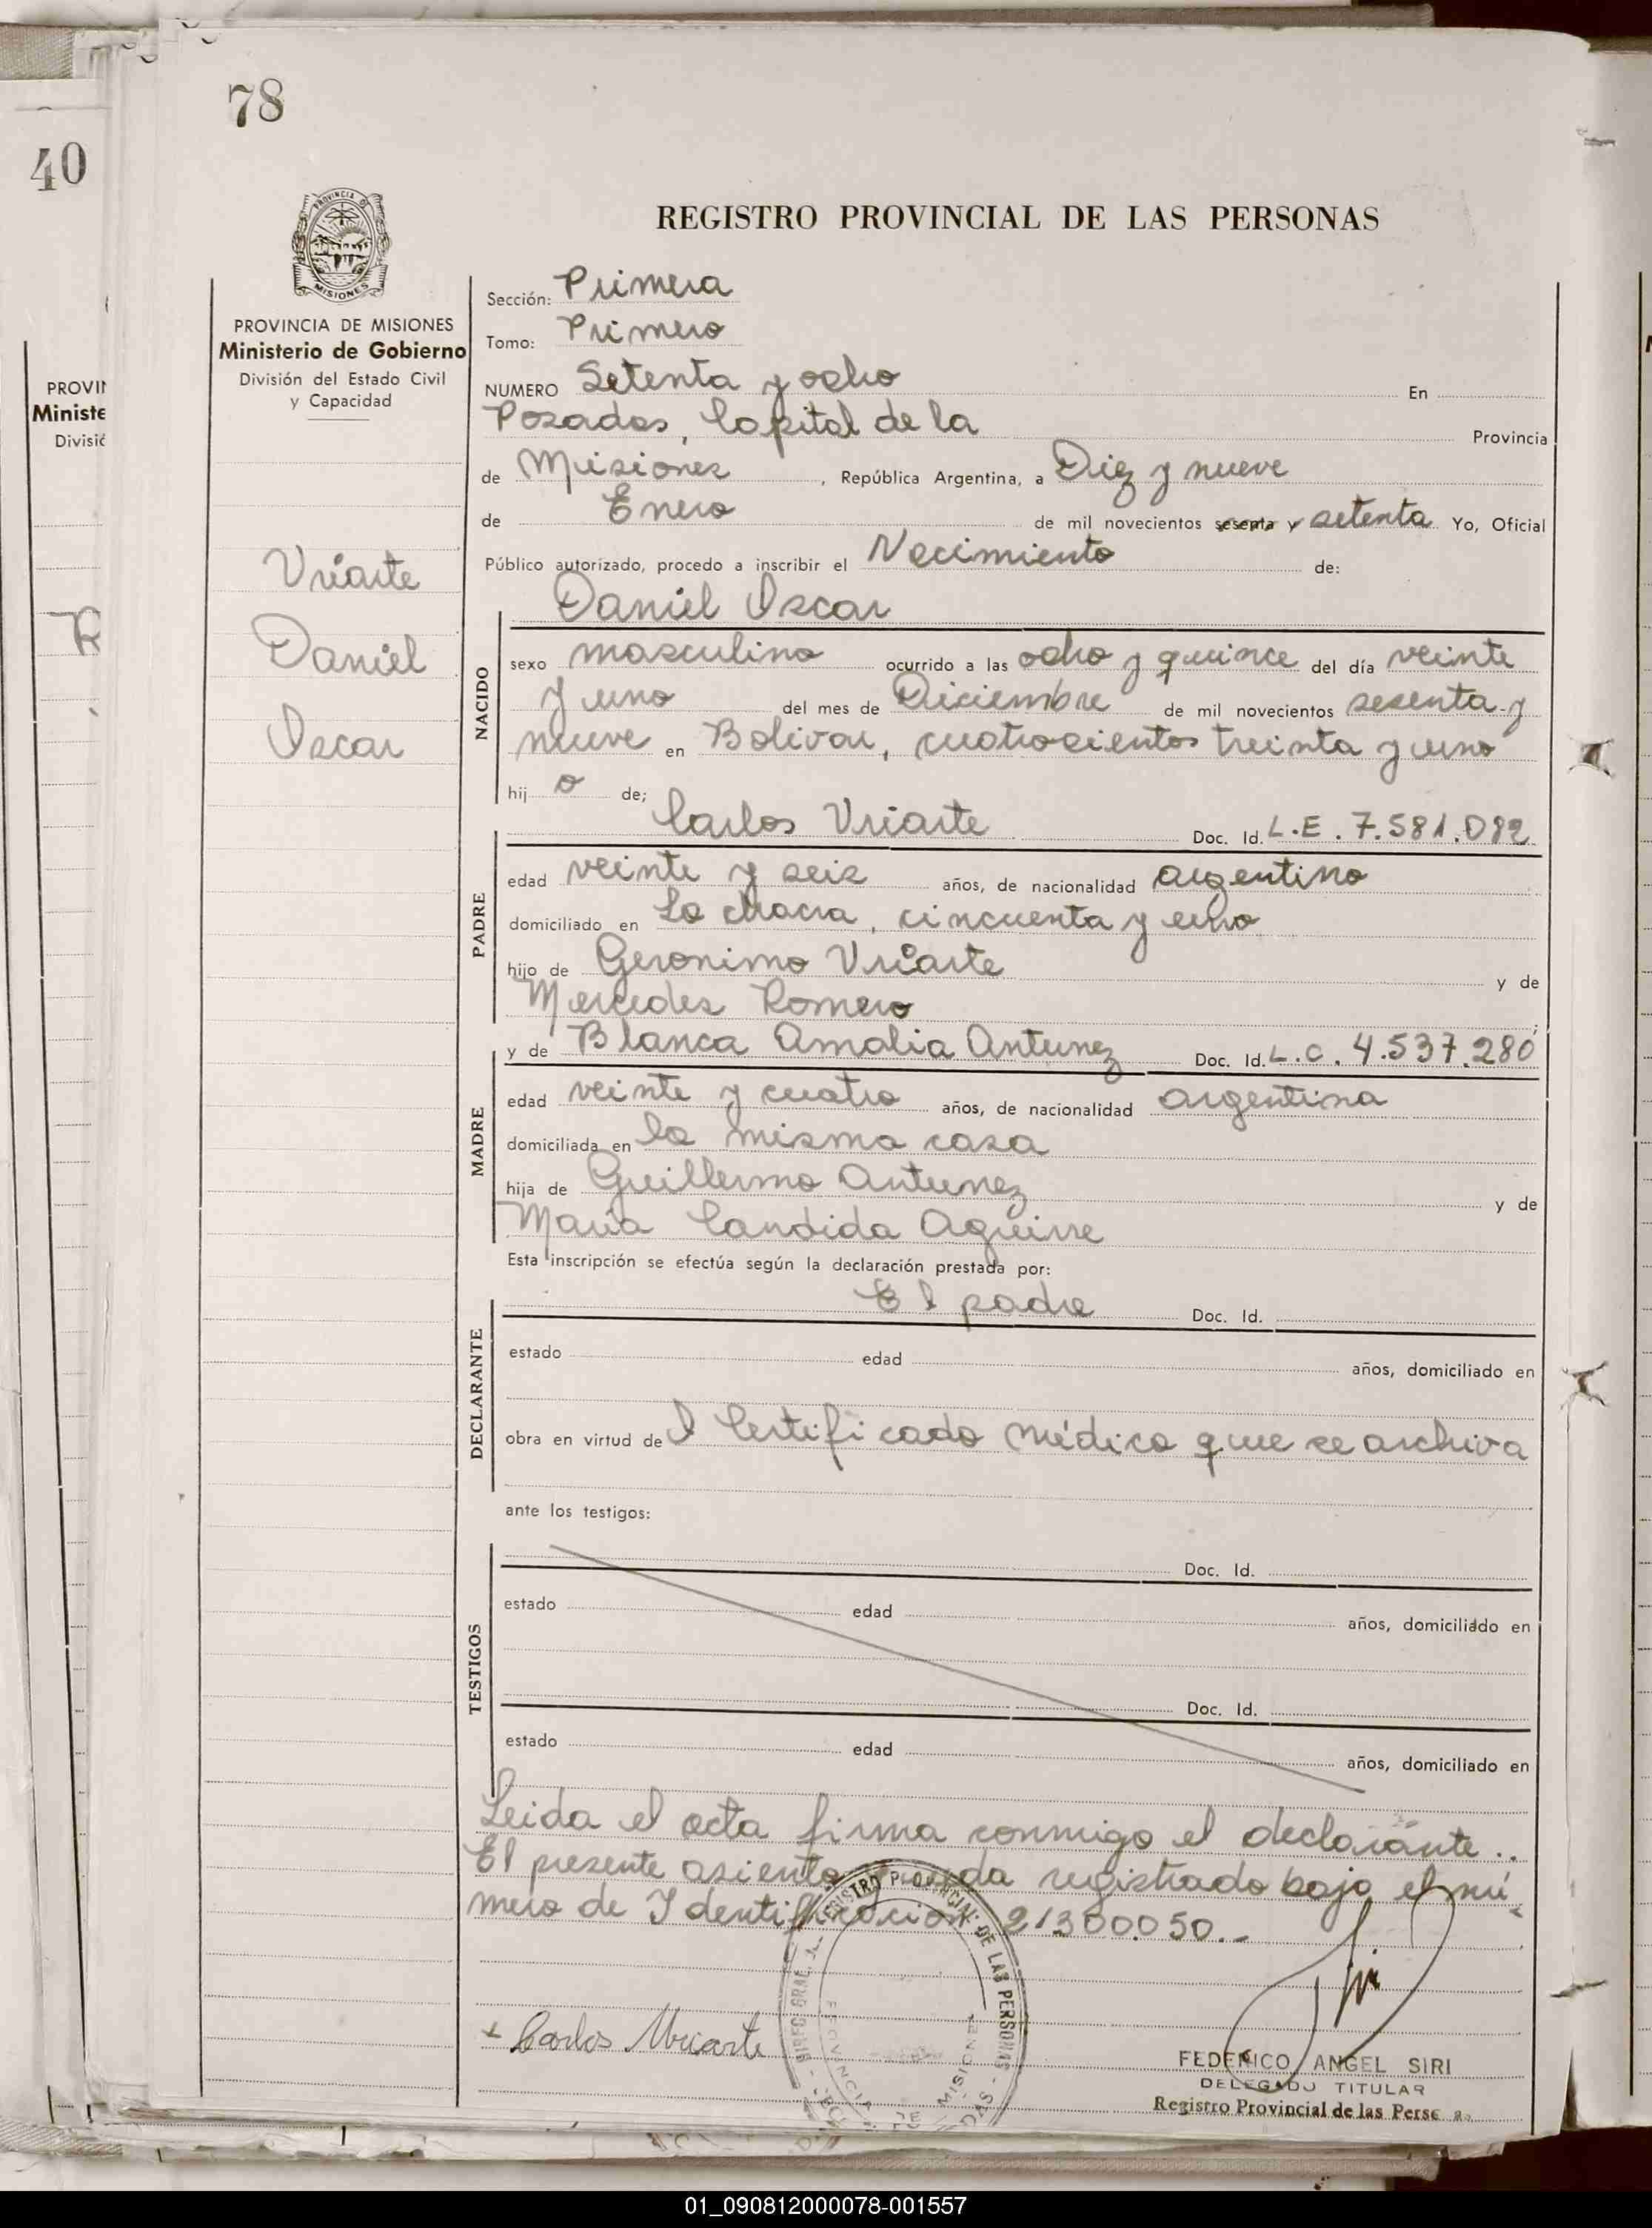 78
40
REGISTRO PROVINCIAL DE LAS PERSONAS
PROVINCIA DE MISIONES
Ministerio de Gobierno
División del Estado Civil
y Capacidad
Uriarte
Daniel
Oscar
Sección: Primera
Tomo: Primero
NUMERO Setenta y ocho En
Posadas, Capital de la Provincia
de Misiones, República Argentina, a Diez y nueve
de Enero de mil novecientos sesenta y setenta Yo, Oficial
Público autorizado, procedo a inscribir el Nacimiento de:
Daniel Oscar
NACIDO
sexo masculino ocurrido a las ocho y quince del día veinte
y uno del mes de Diciembre de mil novecientos sesenta y
nueve en Bolivar, cuatrocientos treinta y uno
hij o de;
Carlos Uriarte Doc. Id. L.E. 7.581.092
PADRE
edad veinte y seis años, de nacionalidad argentino
domiciliado en La chacra, cincuenta y uno
hijo de Geronimo Uriarte y de
Mercedes Romero
y de Blanca Amalia Antunez Doc. Id. L.C. 4.537.280
MADRE
edad veinte y cuatro años, de nacionalidad argentina
domiciliada en la misma casa
hija de Guillermo Antunez y de
María Candida Aguirre
Esta inscripción se efectúa según la declaración prestada por:
El padre Doc. Id.
DECLARANTE
estado edad años, domiciliado en
obra en virtud de l Certificado médico que se archiva
ante los testigos:
TESTIGOS
Doc. Id.
estado edad años, domiciliado en
Doc. Id.
estado edad años, domiciliado en
Leida el acta firma conmigo el declarante..
El presente asiento queda registrado bajo el nú
mero de Identificación: 21300050.-
Carlos Uriarte
REGISTRO PROVINCIAL DE LAS PERSONAS
PROVINCIA DE MISIONES
FEDERICO ANGEL SIRI
DELEGADO TITULAR
Registro Provincial de las Perso as
01_090812000078-001557